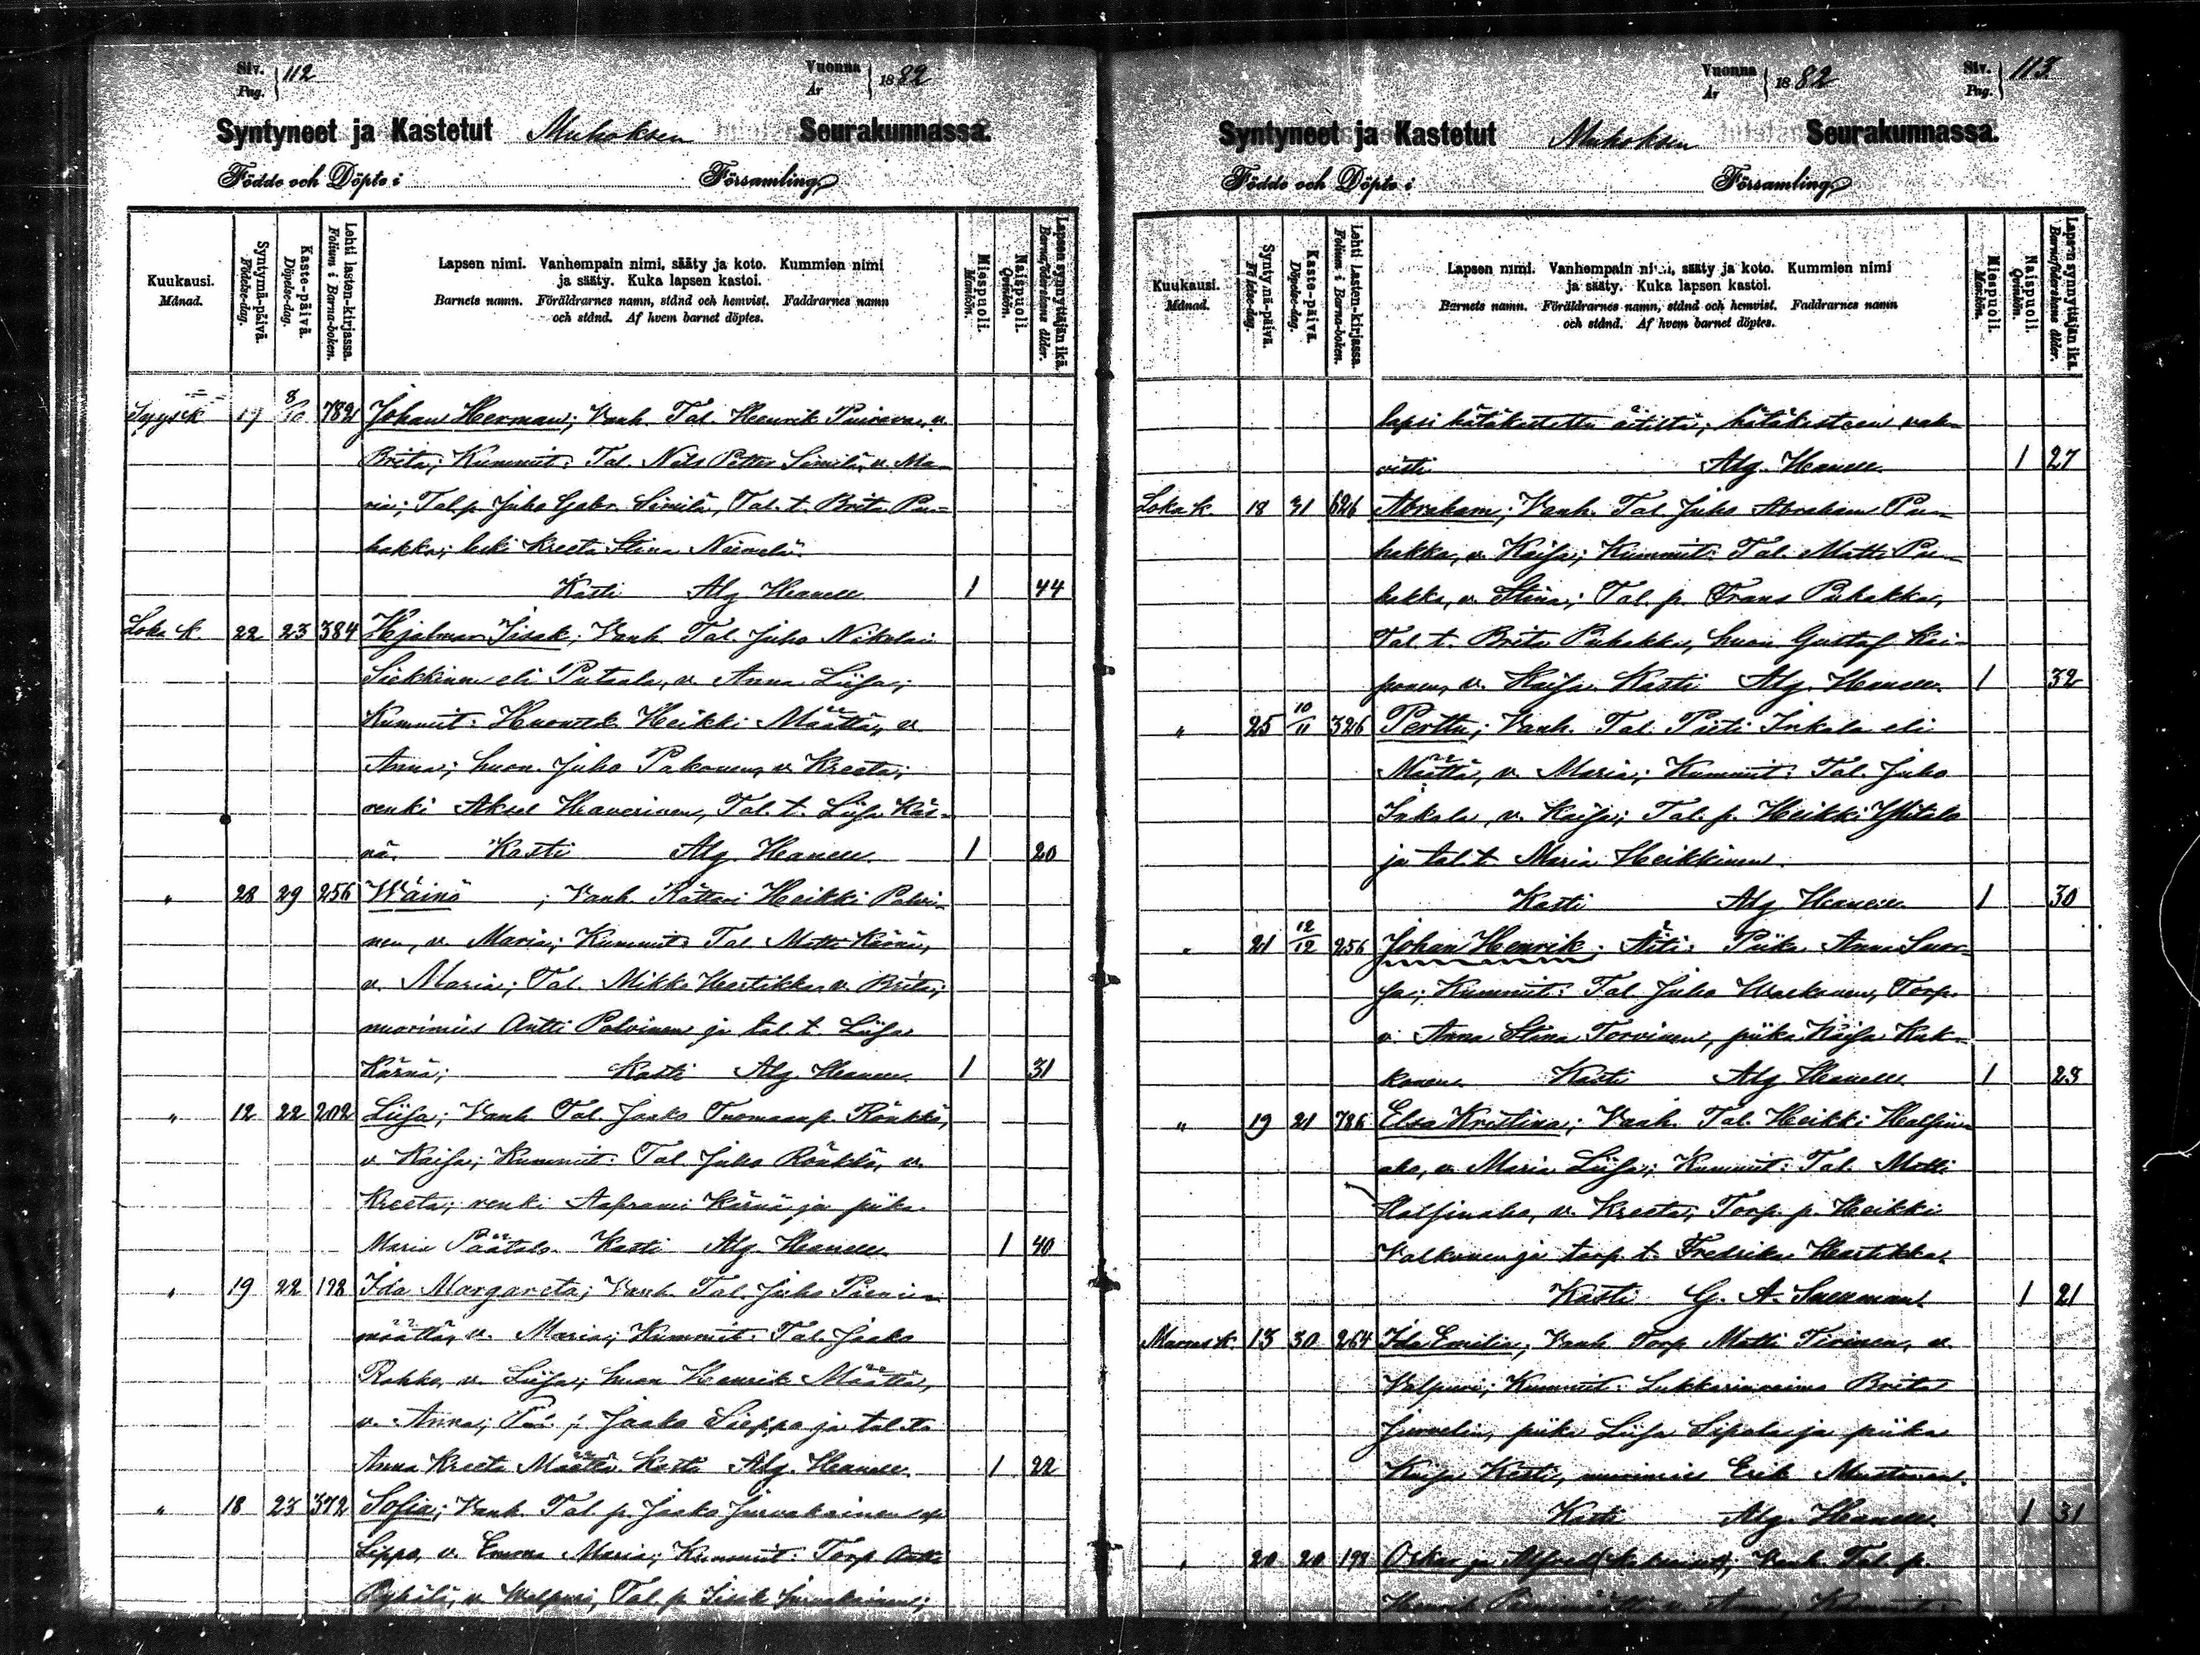 Siv. Pag. 112
Vuonna År 1882
Syntyneet ja Kastetut Muhoksen Seurakunnassa.
Födde och Döpte i Församling
Kuukausi. Månad.
Syntymä-päivä. Födelse-dag.
Kaste-päivä. Döpelse-dag.
Lehti lasten-kirjassa. Folium i Barna-boken.
Lapsen nimi. Vanhempain nimi, sääty ja koto. Kummien nimi
ja sääty. Kuka lapsen kastoi.
Barnets namn. Föräldrarnes namn, stånd och hemvist. Faddrarnes namn
och stånd. Af hvem barnet döptes.
Miespuoli. Mankön.
Naispuoli. Qvinkön.
Lapsen synnyttäjän ikä. Barnaföderskans ålder.
Syysk 17 8/10 782 Johan Herman; Vanh. Tal. Henrik v.
Brita; Kummit: Tal. Nils Petter Similä, v. Ma-
ria; Tal. p. Juho Gabr. Similä, Tal. t. Brita Pu-
hakka; leski Kreeta Stina
Kasti Alg. 1 44
Loka k. 22 23 384 Hjalmar Iisak; Vanh. Tal. Juho Nikolai
Siekkinen eli Putaala, v. Anna Liisa;
Kummit: Heikki Määttä, v.
Anna; huon. Juho Pakonen, v. Kreeta;
renki Aksel Haverinen, Tal. t. Liisa Kär-
nä. Kasti Alg. 1 20
" 28 29 256 Wäinö; Vanh. Rättäri Heikki Palvi-
nen, v. Maria; Kummit: Tal. Matti Kärnä,
v. Maria; Tal. Mikki Hartikka v. Brita;
nuorimies Antti Palvinen ja tal. t. Liisa
Kärnä; Kasti Alg. 1 31
" 12 22 202 Liisa; Vanh. Tal. Jaako Tuomaanp. Rönkkö,
v. Kaisa; Kummit: Tal. Juho Rönkkö, v.
Kreeta; renki Aaprami Kärnä ja piika
Maria Päätalo. Kasti Alg. 1 40
" 19 22 198 Ida Margareta; Vanh. Tal. Juho Pieni-
määttä, v. Maria; Kummit: Tal. Jaako
v. Liisa; huon Henrik Määttä,
v. Anna; Tal. p. Jaako Sieppo ja tal. t.
Anna Kreeta Määttä. Kasti Alg. 1 22
" 18 23 372 Sofia; Vanh. Tal. p. Jaako Jurvakainen
Lippo, v. Emma Maria; Kummit: Torp. Antti
Pyhälä, v. Walpuri, Tal. p. Iisak Jurvakainen;
Vuonna År 1882
Siv. Pag. 113
Syntyneet ja Kastetut Muhoksen Seurakunnassa.
Födde och Döpte i Församling
Kuukausi. Månad.
Syntymä-päivä. Födelse-dag.
Kaste-päivä. Döpelse-dag.
Lehti lasten-kirjassa. Folium i Barna-boken.
Lapsen nimi. Vanhempain nimi, sääty ja koto. Kummien nimi
ja sääty. Kuka lapsen kastoi.
Barnets namn. Föräldrarnes namn, stånd och hemvist. Faddrarnes namn
och stånd. Af hvem barnet döptes.
Miespuoli. Mankön.
Naispuoli. Qvinkön.
Lapsen synnyttäjän ikä. Barnaföderskans ålder.
lapsi hätäkastettu äitiltä; hätäkasteen vah-
visti Alg. 1 27
Loka k. 18 31 626 Abraham; Vanh. Tal. Juho Abraham Pu-
hakka, v. Kaisa; Kummit: Tal. Matti Pu-
hakka, v. Stina; Tal. p. Frans Puhakka,
Tal. t. Brita Puhakka, huon Gustaf Kai-
ponen, v. Kaisa. Kasti Alg. 1 32
" 25 10/11 326 Perttu; Vanh. Tal. Pieti Inkala eli
Määttä, v. Maria; Kummit: Tal. Juho
Inkala, v. Kaisa; Tal. p. Heikki Ylitalo
ja tal. t. Maria Heikkinen.
Kasti Alg. 1 30
" 21 12/12 256 Johan Henrik. Äiti: Piika Anna
Kummit: Tal. Juho Torp.
v. Anna Stina Torvinen, piika Kaisa Kuk-
konen. Kasti Alg. 1 23
" 19 21 786 Elsa Kristina; Vanh. Tal. Heikki Halfin-
aho, v. Maria Liisa; Kummit: Tal. Matti
Halfinaho, v. Kreeta; Torp. p. Heikki
Valkonen ja torp. t. Fredrika Hartikka.
Kasti G. A. Snellman. 1 21
Marras k. 13 30 264 Ida Emilia; Vanh. Torp. Matti Tirinen, v.
Valpuri; Kummit: Lukkarin vaimo Brita
Jurvelin, piika Liisa Sipola ja piika
Kaisa nuorimies Erik Mustonen.
Kasti Alg. 1 31
" 20 20 198 Oskar ja Alfred (kaksoiset); Vanh. Tal. p.
Henrik v. Anna; Kummit: